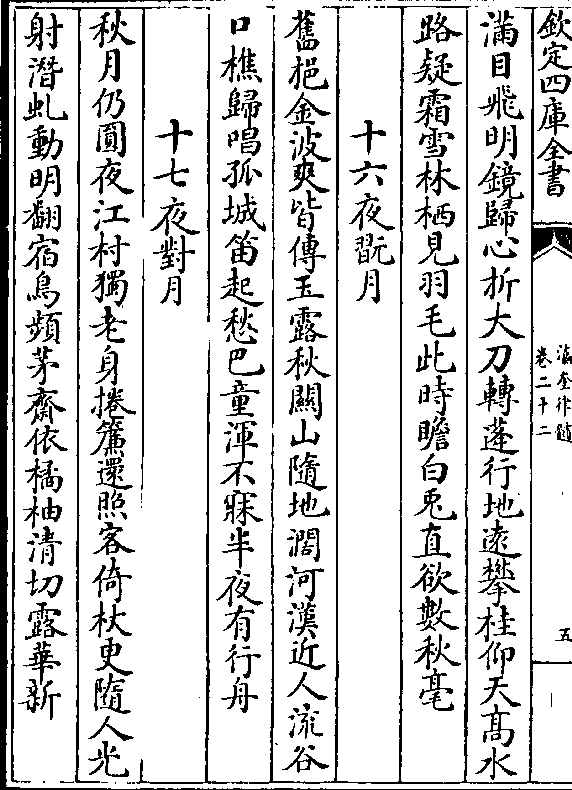 欽定四庫全書
瀛奎律髓
卷二十二
五
滿目飛明鏡歸心折大刀轉蓬行地遠攀桂仰天髙水
路疑霜雪林栖見羽毛此時瞻白兎直欲數秋毫
十六夜翫月
舊挹金波爽皆傳玉露秋闗山隨地濶河漢近人流谷
口樵歸唱孤城笛起愁巴童渾不寐半夜有行舟
十七夜對月
秋月仍圓夜江村獨老身捲簾還照客倚杖更隨人光
射潛虬動明翻宿鳥頻茅齋依橘柚清切露華新